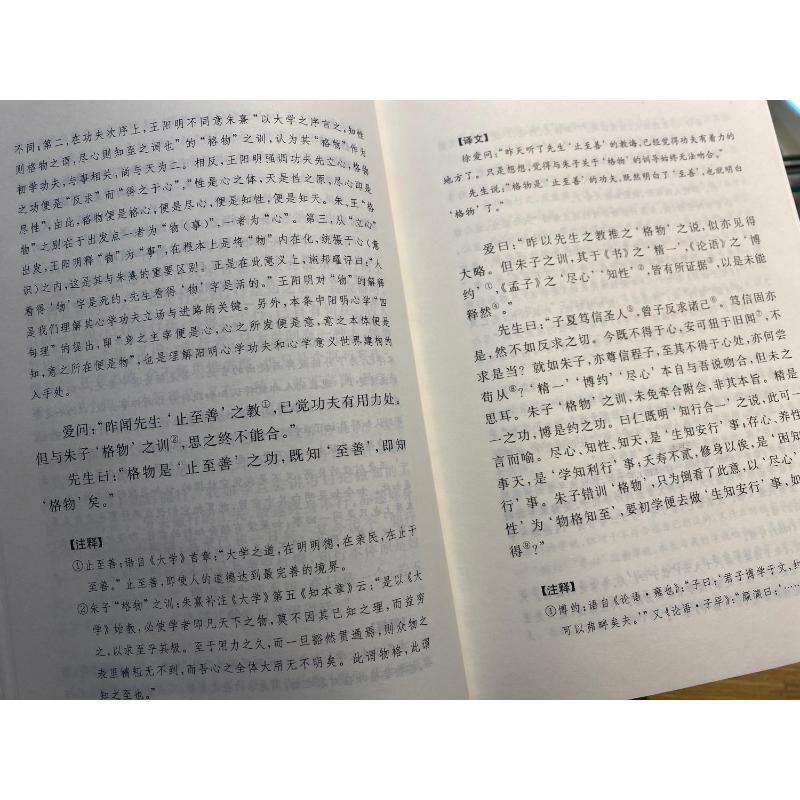 不同；第二，在功夫次序上，王阳明不同意朱熹“以大学之序言之，知性
则格物之谓，尽心则知至之谓也”的“格物”之训，认为其“格物”作为
初学功夫，与事相关，尚与天为二。相反，王阳明强调功夫先立心，格物
之功便是“反求”而“得之于心”，“性是心之体，天是性之原，尽心即是
尽性”，由此，格物便是格心，便是尽心，便是知性，便是知天。朱、王“格
物”之别在于出发点一者为“物（事）”，一者为“心”。第三，从“立心”
出发，王阳明释“物”为“事”，在根本上是将“物”内在化，统摄于心（意
识）之内，这是其与朱熹的重要区别。正是在此意义上，施邦曜评曰：“人
看得‘物’字是死的，先生看得‘物’字是活的。”王阳明对“物”的解释
是我们理解其心学功夫立场与进路的关键。另外，本条中阳明心学“四
句理”的提出，即“身之主宰便是心，心之所发便是意，意之本体便是
知，意之所在便是物”，也是理解阳明心学功夫和心学意义世界建构的
入手处。
爱问：“昨闻先生‘止至善’之教①，已觉功夫有用力处。
但与朱子‘格物’之训②，思之终不能合。”
先生曰：“格物是‘止至善’之功，既知‘至善’，即知
‘格物’矣。”
【注释】
①止至善：语自《大学》首章：“大学之道，在明明德，在亲民，在止于
至善。”止至善，即使人的道德达到最完善的境界。
②朱子“格物”之训：朱熹补注《大学》第五《知本章》云：“是以《大
学》始教，必使学者即凡天下之物，莫不因其已知之理，而益穷
之，以求至乎其极。至于用力之久，而一旦豁然贯通焉，则众物之
表里精粗无不到，而吾心之全体大用无不明矣。此谓物格，此谓
知之至也。”
【译文】
徐爱问：“昨天听了先生‘止至善’的教诲，已经觉得功夫有着力的
地方了。只是想想，觉得与朱子关于‘格物’的训导始终无法吻合。”
先生说：“格物是‘止至善’的功夫，既然明白了‘至善’，也就明白
‘格物’了。”
爱曰：“昨以先生之教推之‘格物’之说，似亦见得
大略。但朱子之训，其于《书》之‘精一’，《论语》之‘博
约’①，《孟子》之‘尽心’‘知性’②，皆有所证据③，以是未能
释然④。”
先生曰：“子夏笃信圣人⑤，曾子反求诸己⑥。笃信固亦
是，然不如反求之切。今既不得于心，安可狃于旧闻⑦，不
求是当？就如朱子，亦尊信程子，至其不得于心处，亦何尝
苟从⑧？‘精一’‘博约’‘尽心’本自与吾说吻合，但未之
思耳。朱子‘格物’之训，未免牵合附会，非其本旨。精是
一之功，博是约之功。曰仁既明‘知行合一’之说，此可一
言而喻。尽心、知性、知天，是‘生知安行’事；存心、养性
事天，是‘学知利行’事；夭寿不贰，修身以俟，是‘困知
行’事。朱子错训‘格物’，只为倒看了此意，以‘尽心
性’为‘物格知至’，要初学便去做‘生知安行’事，如
得⑨？”
【注释】
①博约：语自《论语·雍也》：“子曰：‘君子博学于文，约
可以弗畔矣夫。’”又《论语·子罕》：“颜渊曰：‘……